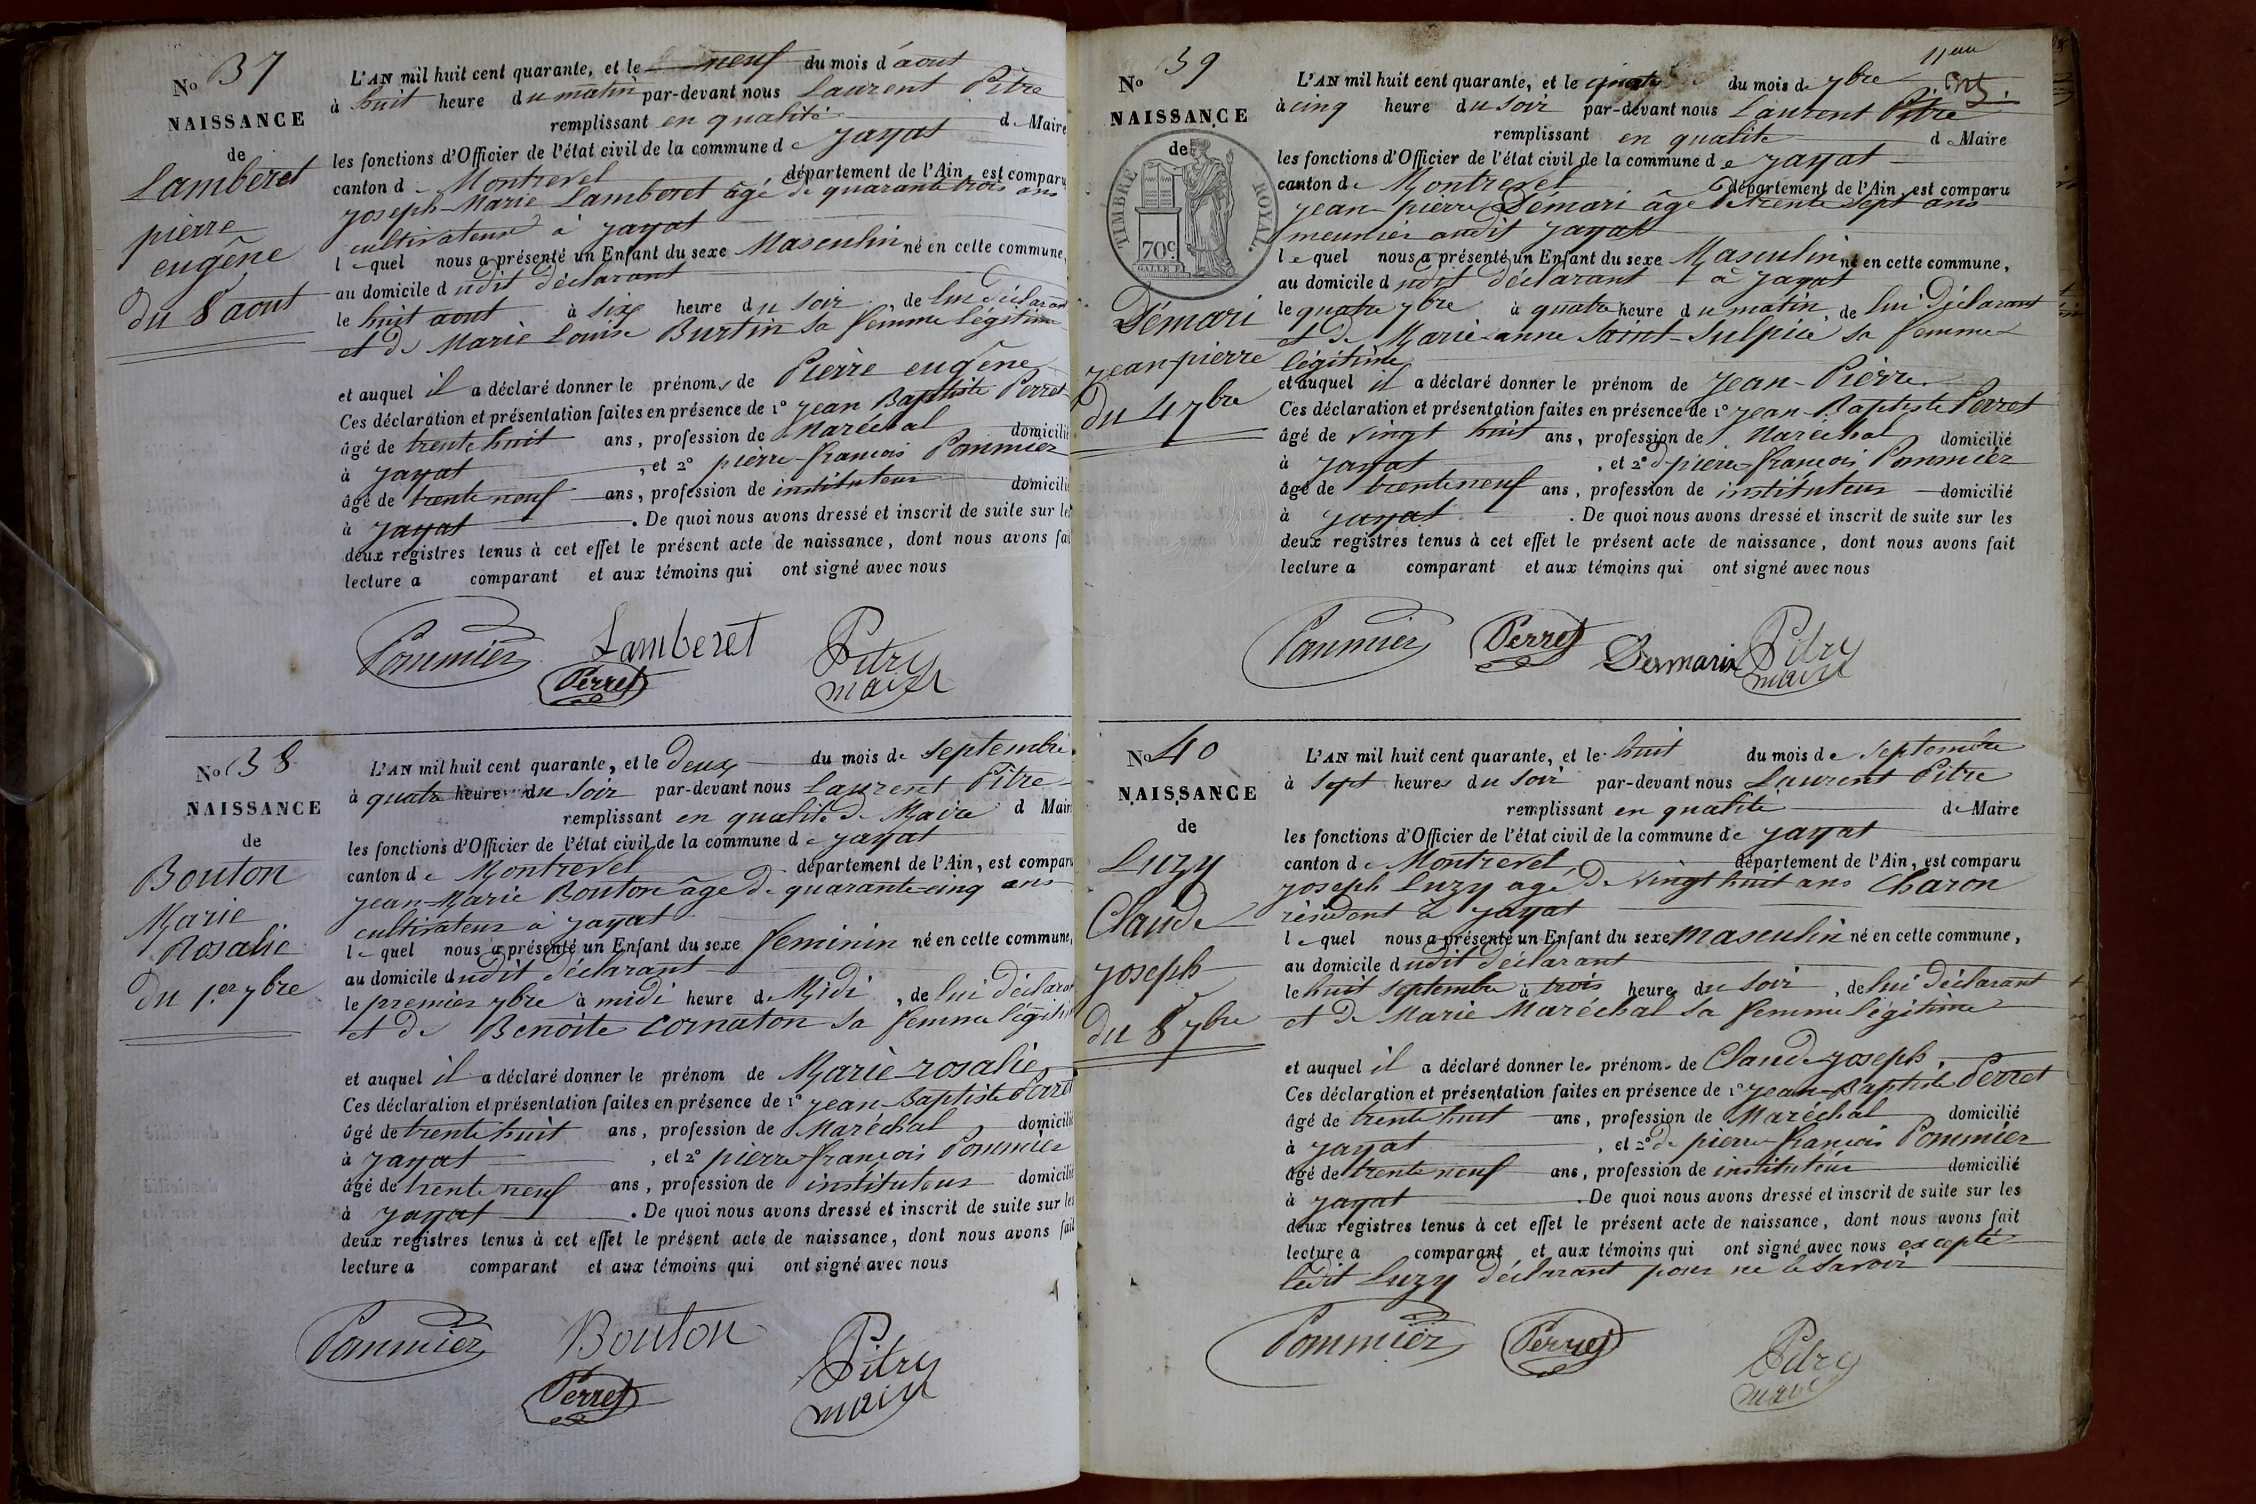 No 37
NAISSANCE
de
Lamberet
pierre
eugêne
du 8 aout
L'AN mil huit cent quarante, et le neuf du mois d'aout
à huit heure du matin par-devant nous Laurent Pitre
remplissant en qualité de Maire
les fonctions d'Officier de l'état civil de la commune de jayat
canton de Montrevel département de l'Ain, est comparu
joseph-Marie Lamberet âgé de quarante trois ans
cultivateur à jayat
lequel nous a présenté un Enfant du sexe Masculin né en cette commune,
au domicile dudit déclarant
le huit aout à six heure du soir, de lui déclarant
et de Marie Louise Burtin sa femme légitime
et auquel il a déclaré donner le prénoms de Pierre eugêne
Ces déclaration et présentation faites en présence de 1° jean Baptiste Perret
âgé de trente huit ans, profession de Maréchal domicilié
à jayat, et 2° pierre-françois Pommier
âgé de trente neuf ans, profession de instituteur domicilié
à jayat. De quoi nous avons dressé et inscrit de suite sur les
deux registres tenus à cet effet le présent acte de naissance, dont nous avons fait
lecture a comparant et aux témoins qui ont signé avec nous
Pommier Lamberet Pitre
Perret maire
No 38
NAISSANCE
de
Bouton
Marie
Rosalie
du 1.er 7bre
L'AN mil huit cent quarante, et le deux du mois de septembre
à quatre heures du soir par-devant nous Laurent Pitre
remplissant en qualité de Maire d Maire
les fonctions d'Officier de l'état civil de la commune de jayat
canton de Montrevel département de l'Ain, est comparu
jean-Marie Bouton âgé de quarante-cinq ans
cultivateur à jayat
lequel nous a présenté un Enfant du sexe feminin né en cette commune,
au domicile dudit déclarant
le premier 7bre à midi heure de Midi, de lui déclarant
et de Benoite Cornaton sa femme légitime
et auquel il a déclaré donner le prénom de Marie rosalie
Ces déclaration et présentation faites en présence de 1° jean-Baptiste Perret
âgé de trente huit ans, profession de Maréchal domicilié
à jayat, et 2° pierre-françois Pommier
âgé de trente neuf ans, profession de instituteur domicilié
à jayat. De quoi nous avons dressé et inscrit de suite sur les
deux registres tenus à cet effet le présent acte de naissance, dont nous avons fait
lecture a comparant et aux témoins qui ont signé avec nous
Pommier Bouton Pitre
Perret maire
No 39
NAISSANCE
de
TIMBRE ROYAL.
70c.
Démari
jean-pierre
du 4 7bre
L'AN mil huit cent quarante, et le du mois de 7bre
à cinq heure du soir par-devant nous Laurent Pitre
remplissant en qualité de Maire
les fonctions d'Officier de l'état civil de la commune de jayat
canton de Montrevel département de l'Ain, est comparu
jean-pierre Démari âgé de trente sept ans
meunier audit jayat
lequel nous a présenté un Enfant du sexe Masculin né en cette commune,
au domicile dudit déclarant à jayat
le quatre 7bre à quatre heure du matin, de lui déclarant
et de Marie-anne Saint-Sulpice sa femme
légitime
et auquel il a déclaré donner le prénom de jean-Pierre
Ces déclaration et présentation faites en présence de 1° jean-Baptiste Perret
âgé de vingt huit ans, profession de Maréchal domicilié
à jayat, et 2° d pierre-françois Pommier
âgé de trente neuf ans, profession de instituteur domicilié
à jayat. De quoi nous avons dressé et inscrit de suite sur les
deux registres tenus à cet effet le présent acte de naissance, dont nous avons fait
lecture a comparant et aux témoins qui ont signé avec nous
Pommier Perret Demarix Pitre
maire
No 40
NAISSANCE
de
Luzy
Claude
joseph
du 8 7bre
L'AN mil huit cent quarante, et le huit du mois de septembre
à sept heures du soir par-devant nous Laurent Pitre
remplissant en qualité de Maire
les fonctions d'Officier de l'état civil de la commune de jayat
canton de Montrevel, département de l'Ain, est comparu
joseph Luzy agé de vingt huit ans Charon
résident à jayat
lequel nous a présenté un Enfant du sexe masculin né en cette commune,
au domicile dudit déclarant
le huit septembre à trois heure du soir, de lui déclarant
et de Marie Maréchal sa femme légitime
et auquel il a déclaré donner les prénoms de Claude joseph.
Ces déclaration et présentation faites en présence de 1° jean-Baptiste Perret
âgé de trente huit ans, profession de Maréchal domicilié
à jayat, et 2° de pierre-françois Pommier
âgé de trente neuf ans, profession de instituteur domicilié
à jayat. De quoi nous avons dressé et inscrit de suite sur les
deux registres tenus à cet effet le présent acte de naissance, dont nous avons fait
lecture a comparant et aux témoins qui ont signé avec nous excepté
ledit Luzy déclarant pour ne le savoir
Pommier Perret Pitre
maire